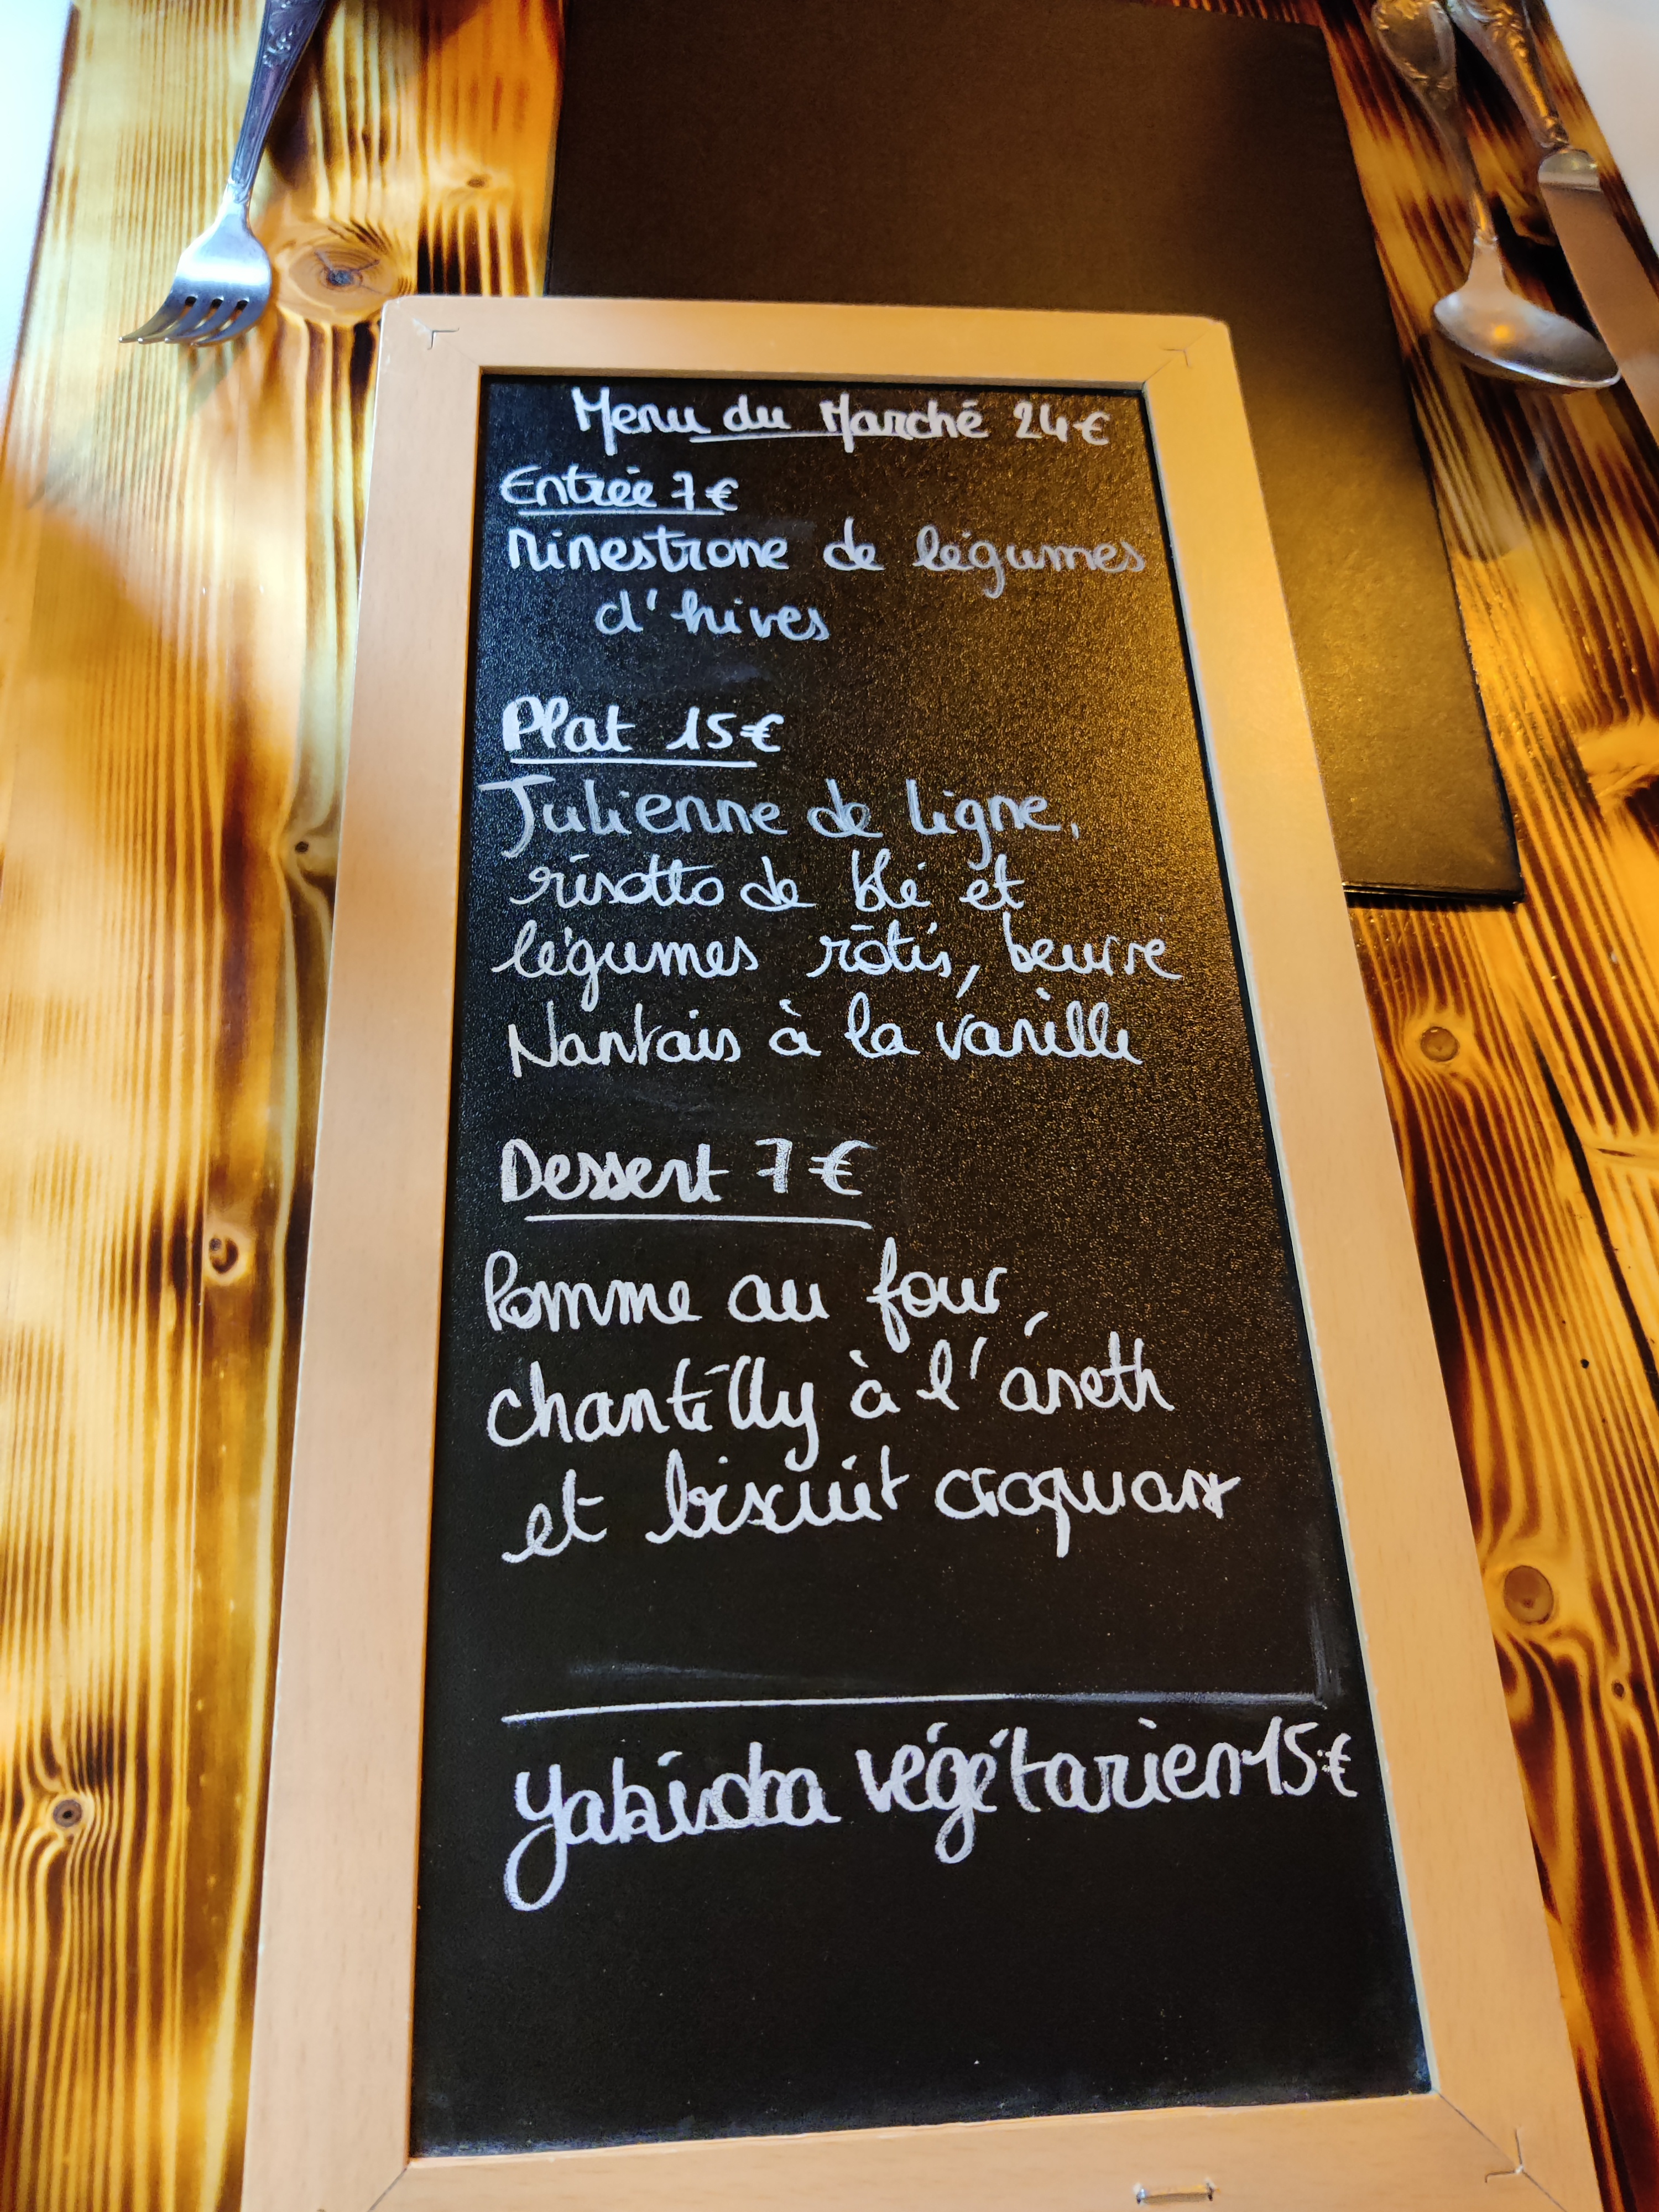 Menu du Marché 24€
Entrée 7€
Minestrone de légumes
d'hives
Plat 15€
Julienne de ligne,
risotto de blé et
légumes rôtis, beurre
Nantais à la vanille
Dessert 7€
Pomme au four,
chantilly à l'aneth
et biscuit croquant
Yakisoba végétarien 15€